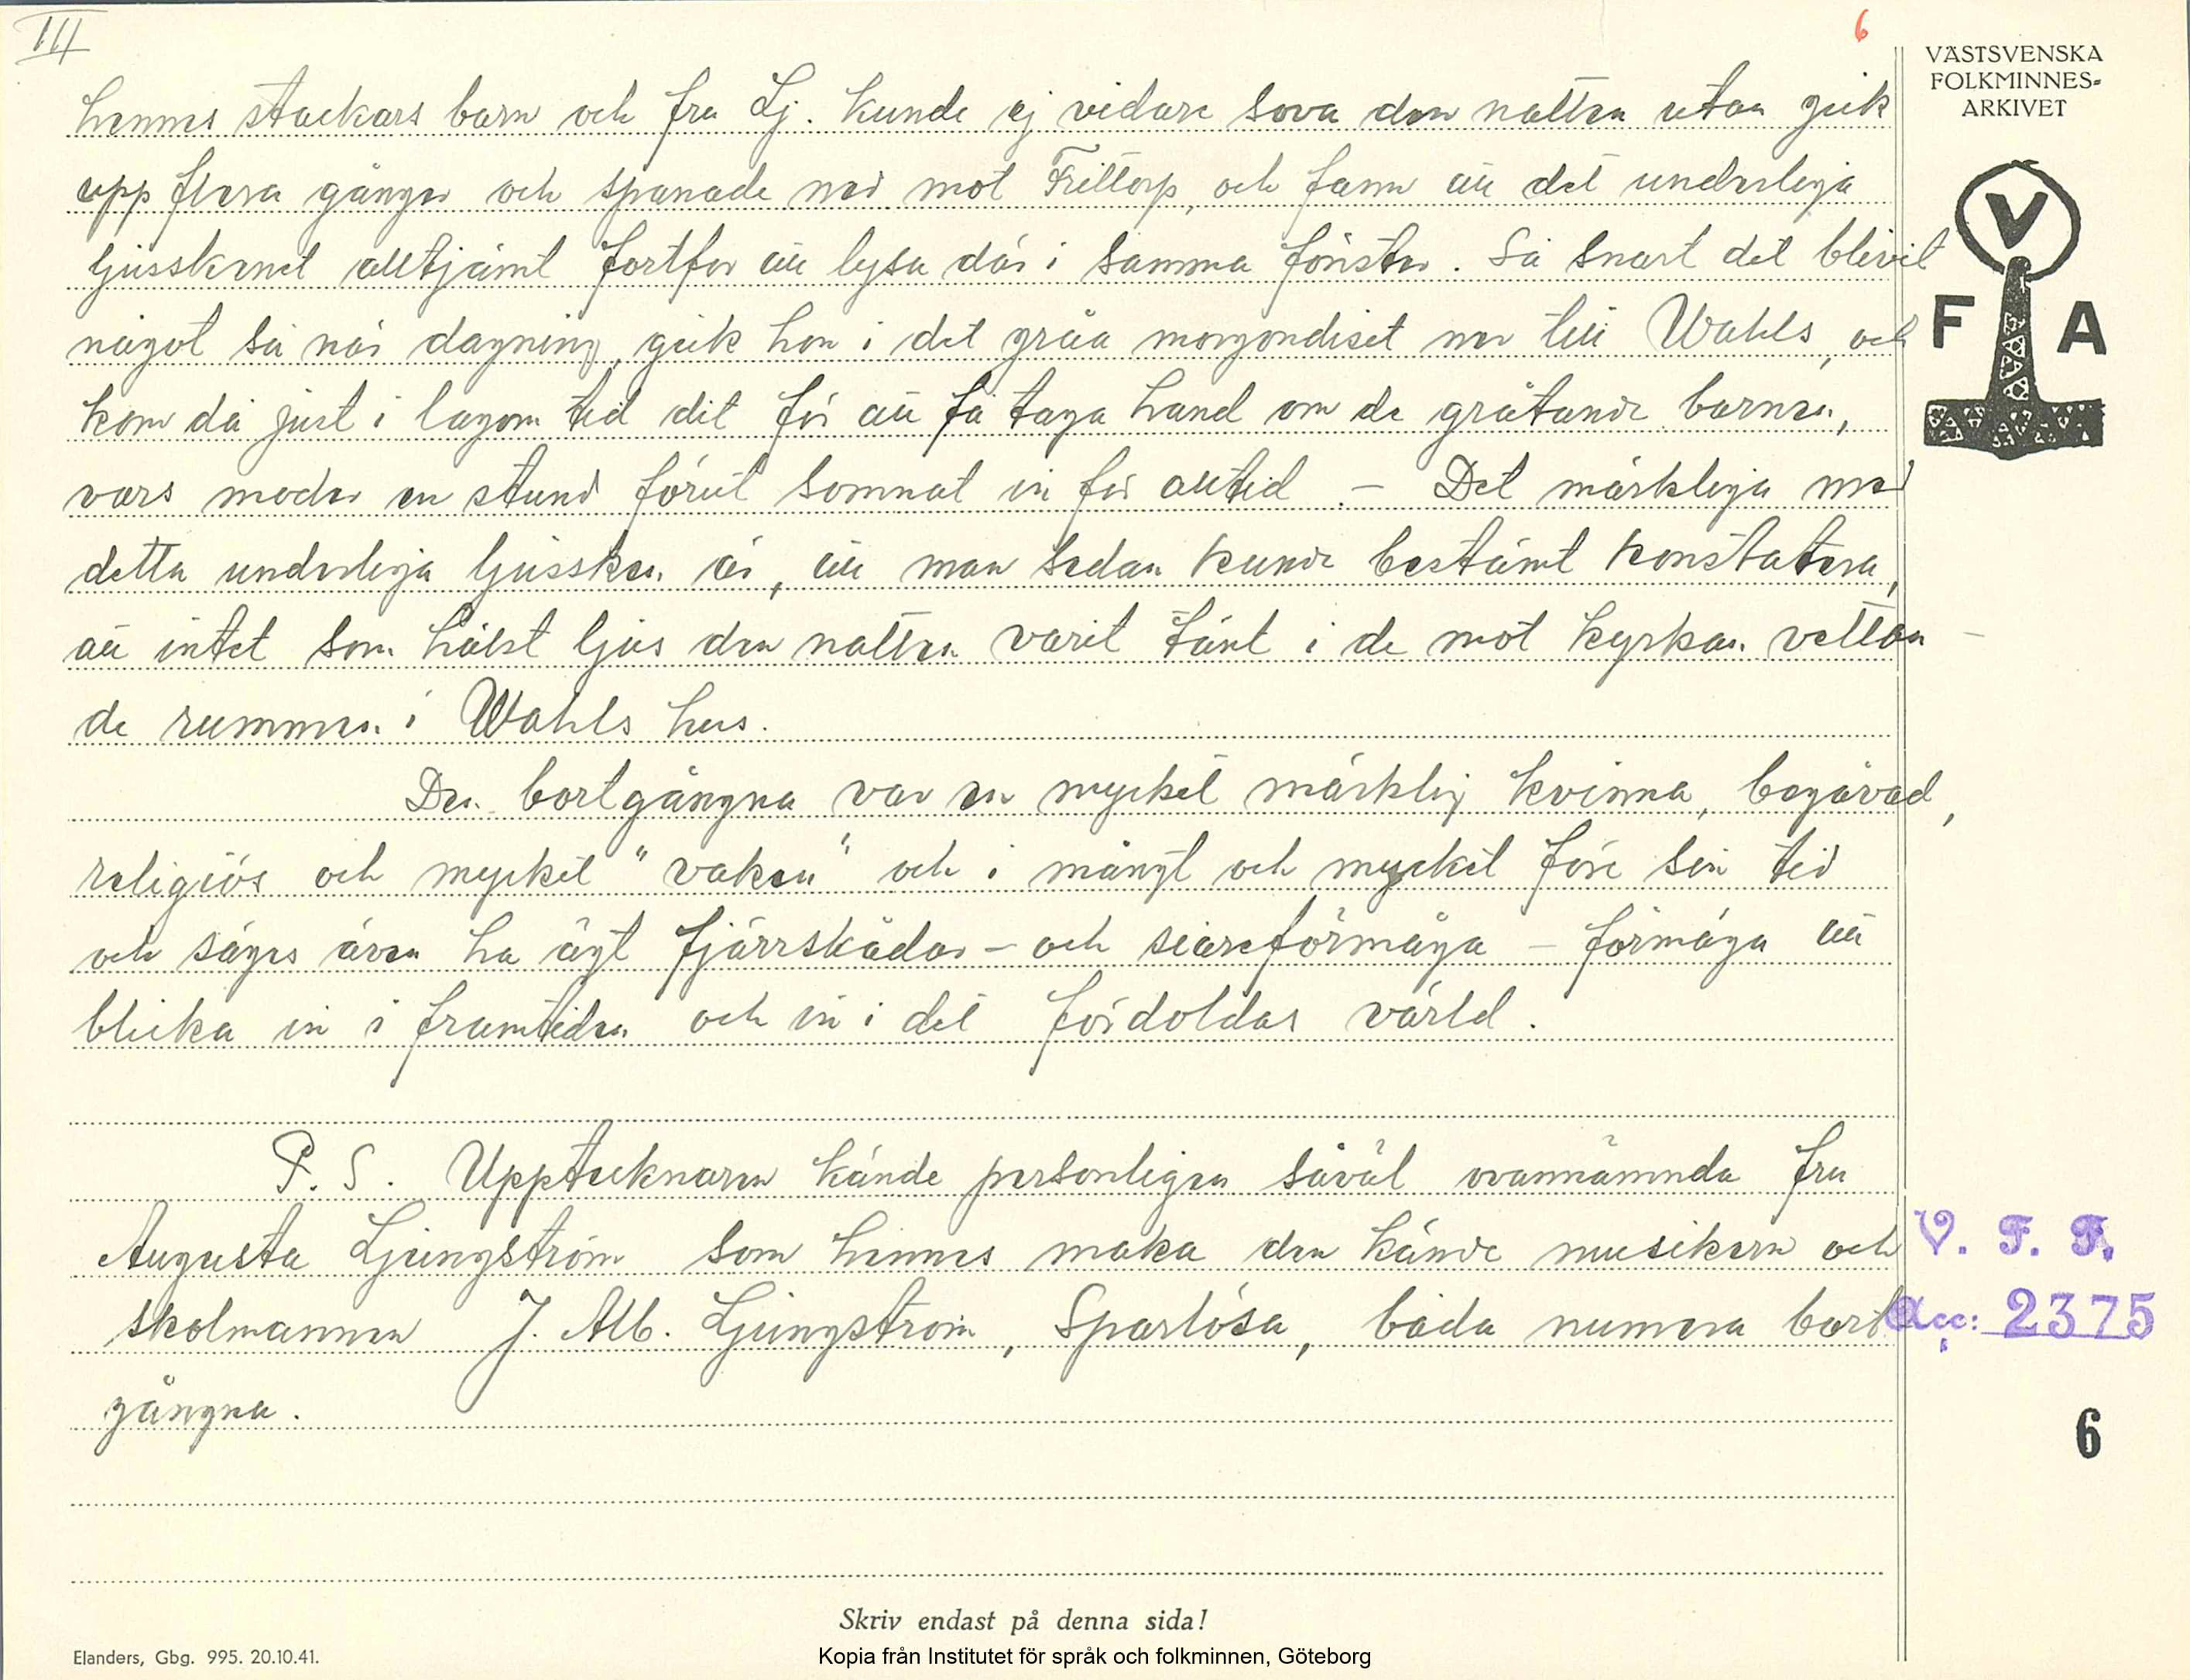 III
6
VÄSTSVENSKA
FOLKMINNES-
ARKIVET
V
F A
hennes stackars barn och fru Lj. kunde ej vidare sova den natten utan gick
upp flera gånger och spanade ned mot Frittorp, och fann att det underliga
ljusskenet alltjämt fortfor att lysa där i samma fönster. Så snart det blivit
något så när dagning, gick hon i det gråa morgondiset ner till Wahls, och
kom då just i lagom tid dit för att få taga hand om de gråtande barnen,
vars moder en stund förut somnat in för alltid. – Det märkliga med
detta underliga ljussken är, att man sedan kunde bestämt konstatera,
att intet som hälst ljus den natten varit tänt i de mot kyrkan vettan
de rummen i Wahls hus.
Den bortgångna var en mycket märklig kvinna, begåvad,
religiös och mycket "vaken" och i mångt och mycket före sin tid
och säges även ha ägt fjärrskådar- och siareförmåga – förmåga att
blicka in i framtiden och in i det fördoldas värld.
P. S. Upptecknaren kände personligen såväl ovannämnda fru
Augusta Ljungström som hennes maka den kände musikern och
skolmannen J. Alb. Ljungström, Sparlösa, båda numera bort
gångna.
V. F. F.
Acc: 2375
6
Skriv endast på denna sida!
Elanders, Gbg. 995. 20.10.41.
Kopia från Institutet för språk och folkminnen, Göteborg